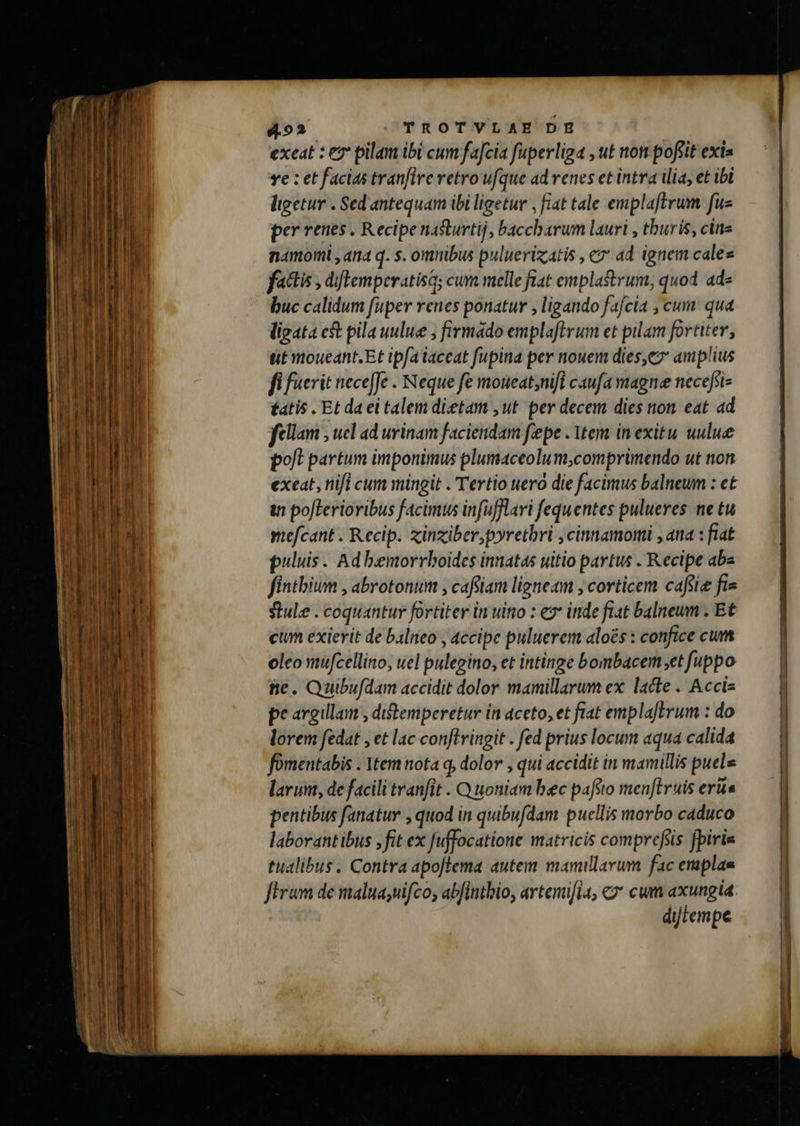 492 TROTVLAE DE
exeat : & pilam ibi cum fascia superliga , ut non possit exi=
re : et facias transire retro usque ad renes et intra ilia, et ibi
ligetur . Sed antequam ibi ligetur , fiat tale emplastrum su=
per renes . Recipe nasturtij, baccharum lauri , thuris, cin=
namomi , ana q. s. omnibus puluerizatis , & ad ignem cale=
factis , distemperatisq; cum melle fiat emplastrum, quod ad=
huc calidum super renes ponatur , ligando fascia , cum qua
ligata est pila uuluæ , firmãdo emplastrum et pilam fortiter,
ut moueant. Et ipsa iaceat supina per nouem dies,& amplius
si fuerit necesse . Neque se moueat,nisi causa magnæ necessi=
tatis . Et da ei talem diætam , ut per decem dies non eat ad
sellam , uel ad urinam faciendam sæpe . Item in exitu uuluæ
post partum imponimus plumaceolum,comprimendo ut non
exeat, nisi cum mingit . Tertio uerò die facimus balneum : et
in posterioribus facimus insufflari sequentes pulueres ne tu
mescant . Recip. zinziber,pyrethri , cinnamomi , ana : fiat
puluis . Ad hæmorrhoides innatas uitio partus . Recipe ab=
sinthium , abrotonum , cassiam ligneam , corticem cassiæ fi=
stulæ . coquantur fortiter in uino : & inde fiat balneum . Et
cum exierit de balneo , accipe puluerem aloës : confice cum
oleo muscellino, uel pulegino, et intinge bombacem ,et suppo
ne . Quibusdam accidit dolor mamillarum ex lacte . Acci=
pe argillam , distemperetur in aceto, et fiat emplastrum : do
lorem sedat , et lac constringit . sed prius locum aqua calida
fomentabis . Item nota q, dolor , qui accidit in mamillis puel=
larum, de facili transit . Quoniam hæc passio menstruis erũ=
pentibus sanatur , quod in quibusdam puellis morbo caduco
laborantibus , fit ex suffocatione matricis compressis spiri=
tualibus . Contra apostema autem mamillarum fac emplas
strum de malua,uisco, absinthio, artemisia, & cum axungia
distempe